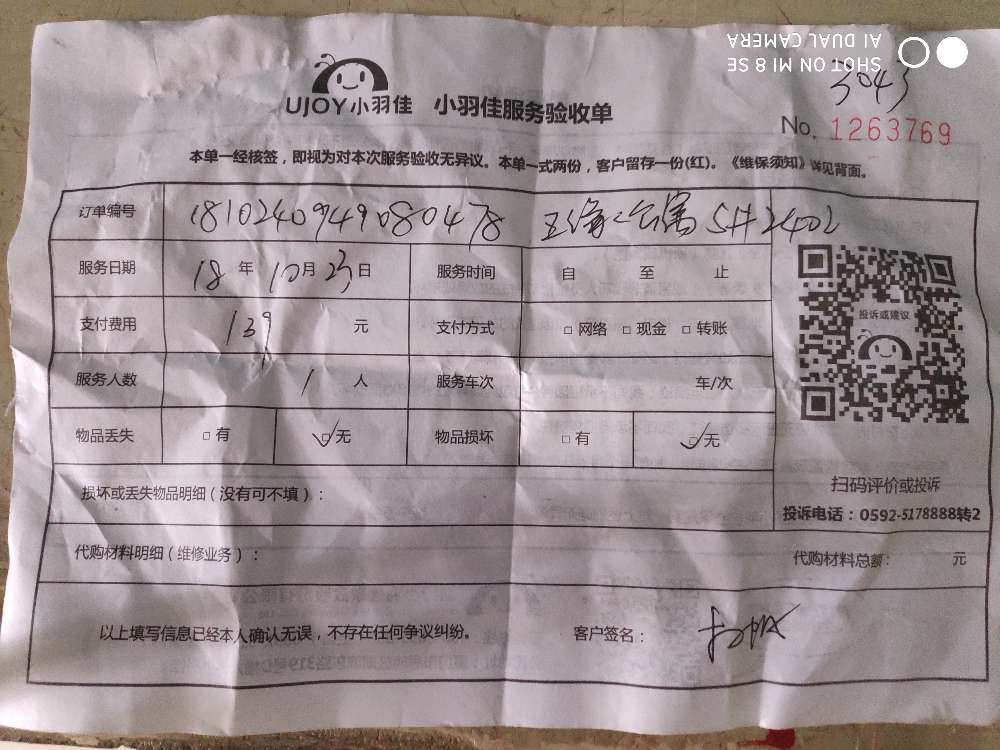 SHOT ON MI 8 SE
AI DUAL CAMERA
3043
UJOY小羽佳 小羽佳服务验收单
No. 1263769
本单一经核签，即视为对本次服务验收无异议。本单一式两份，客户留存一份(红)。《维保须知》详见背面。
订单编号 1810240949080478 5#2402
服务日期 18 年 10 月 23 日 服务时间 自 至 止
支付费用 139 元 支付方式 □ 网络 □ 现金 □ 转账
服务人数 1 人 服务车次 车/次
物品丢失 □ 有 ☑ 无 物品损坏 □ 有 ☑ 无
投诉或建议
扫码评价或投诉
投诉电话：0592-5178888转2
损坏或丢失物品明细（没有可不填）：
代购材料明细（维修业务）： 代购材料总额： 元
以上填写信息已经本人确认无误，不存在任何争议纠纷。 客户签名：